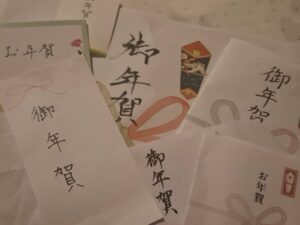 年賀
お年賀
御年賀
御年賀
御年賀
御年賀
お年賀